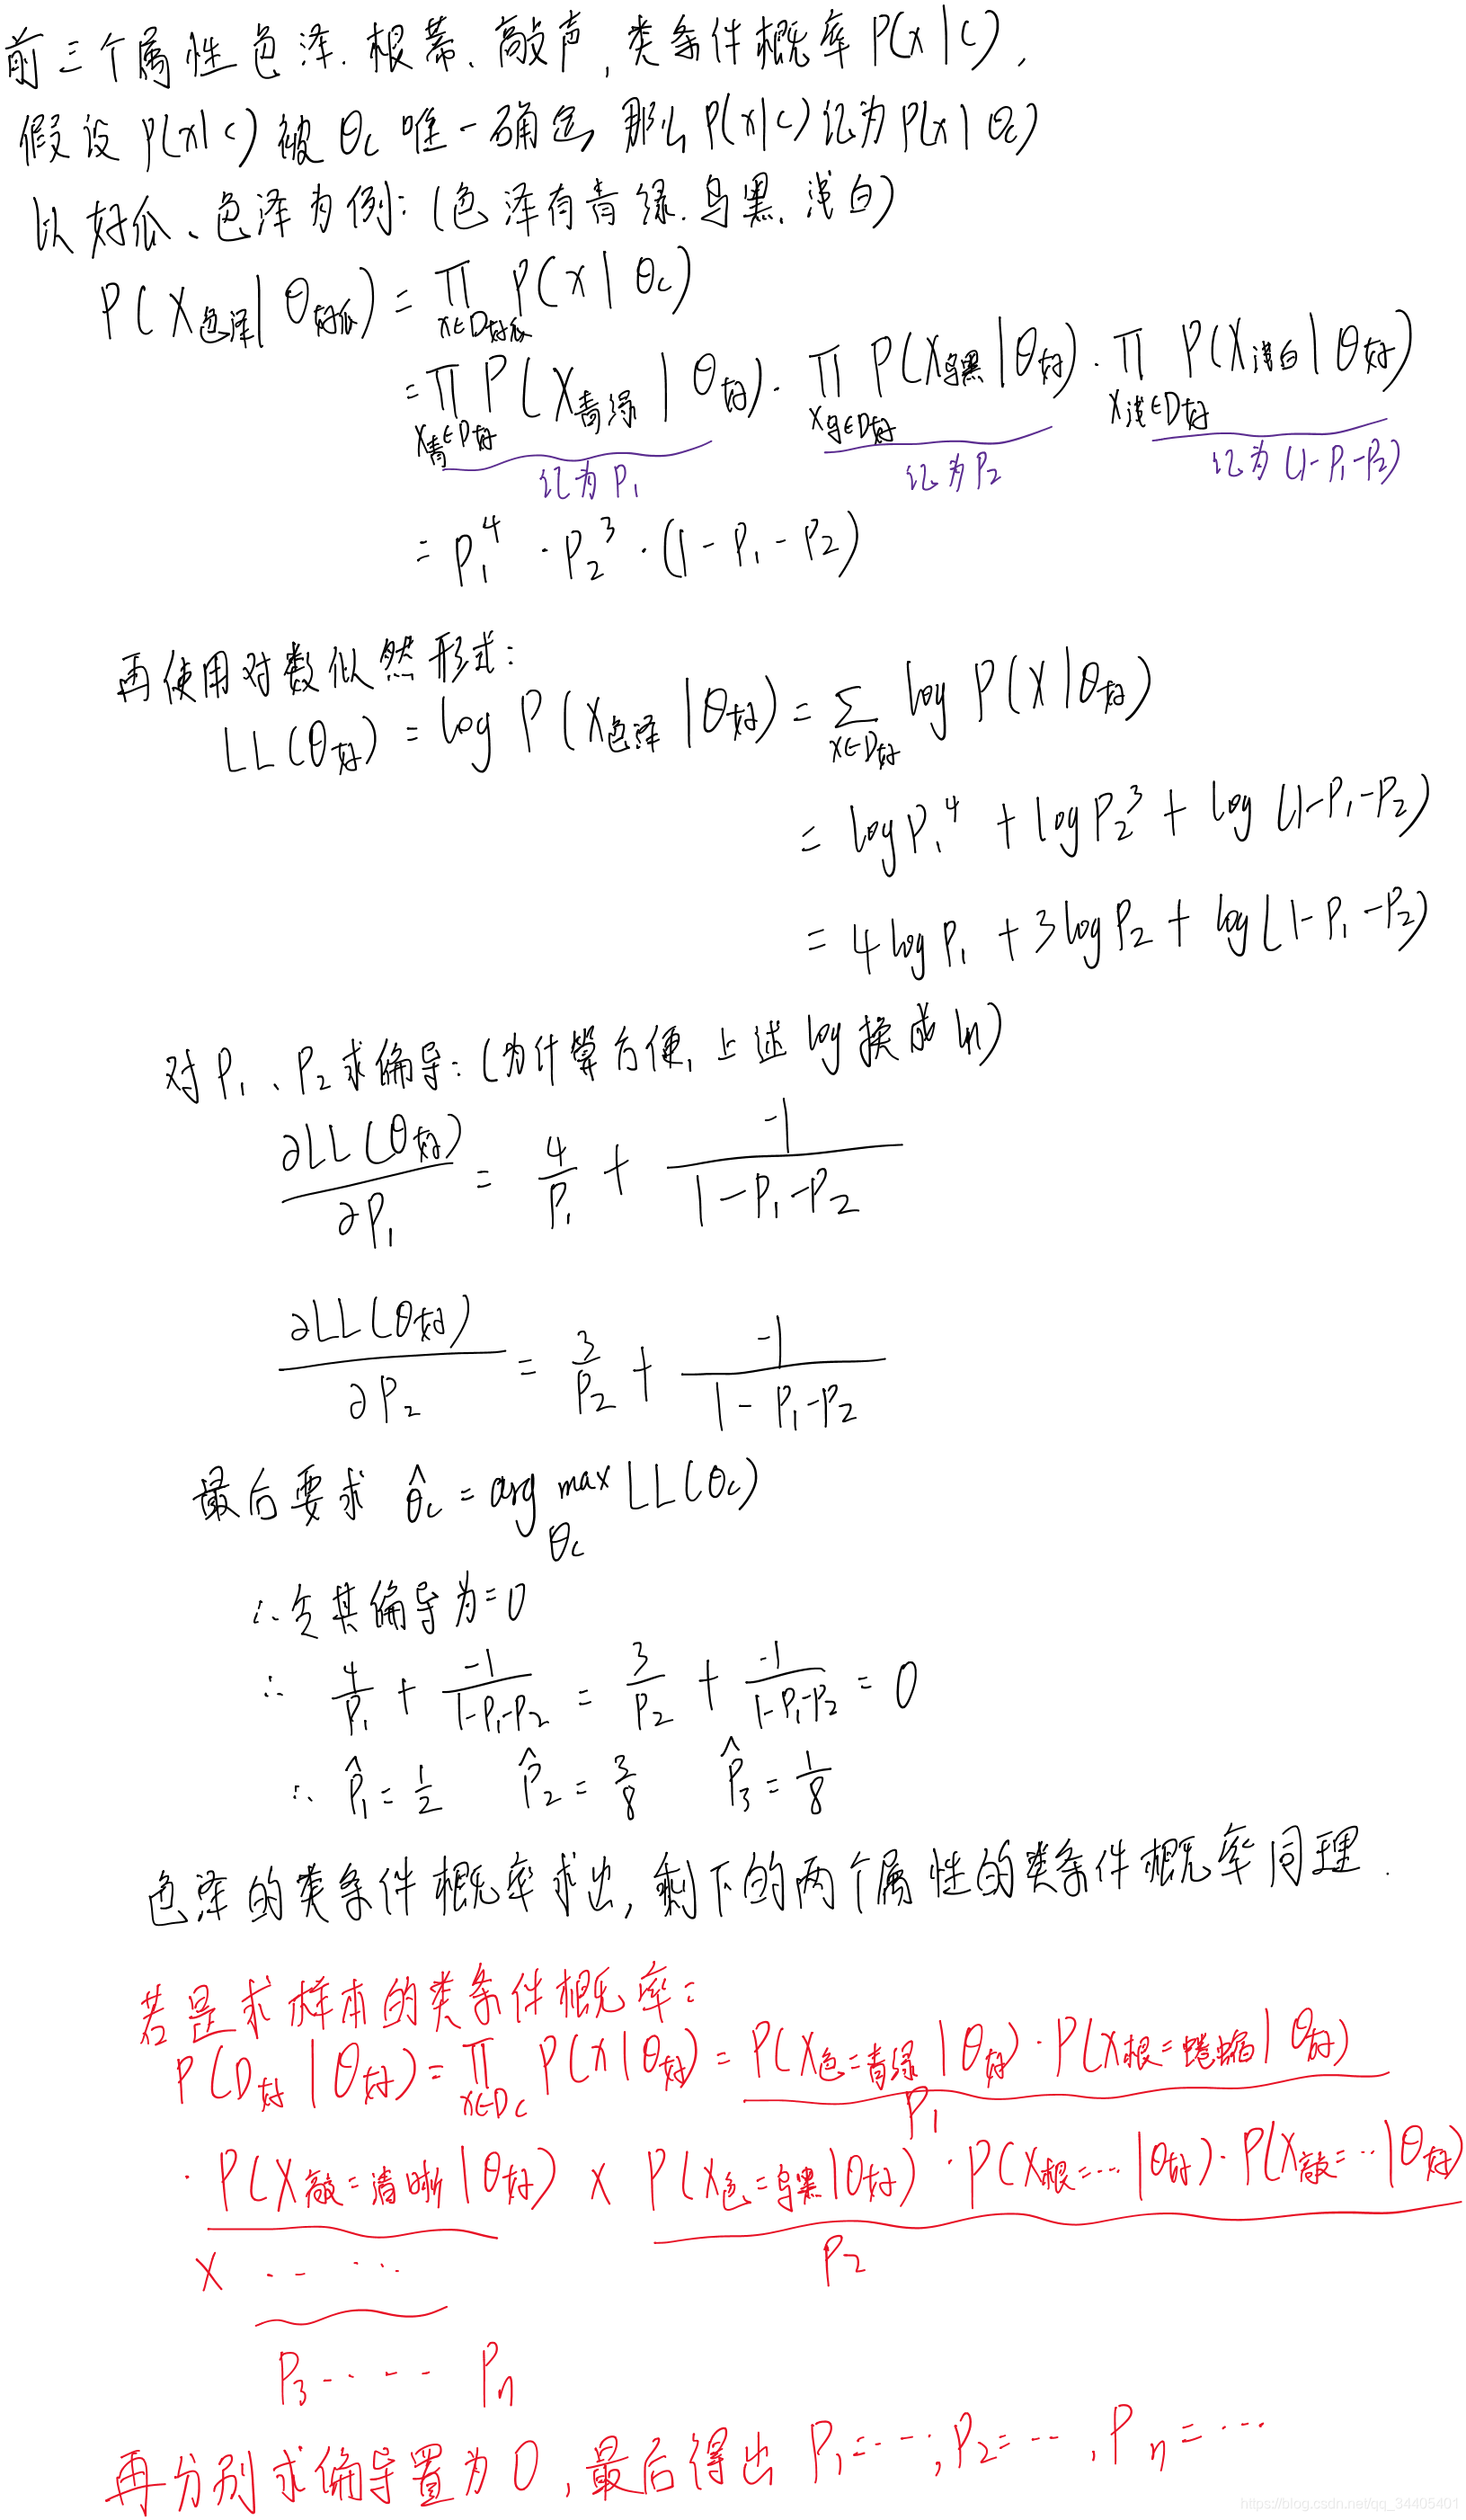 前三个属性色泽.根蒂、敲声,类条件概率P(x|c),
假设P(x|c)被θc唯一确定,那么P(x|c)记为P(x|θc)
以好瓜、色泽为例:(色泽有青绿.乌黑、浅白)
P(X色泽|θ好瓜)=∏x∈D好瓜 P(x|θc)
=∏X青∈D好 P(X青绿|θ好)·∏X乌∈D好 P(X乌黑|θ好)·∏X浅∈D好 P(X浅白|θ好)
记为P₁ 记为P₂ 记为(1-P₁-P₂)
=P₁⁴·P₂³·(1-P₁-P₂)
再使用对数似然形式:
LL(θ好)=log P(X色泽|θ好)=∑x∈D好 log P(X|θ好)
=logP₁⁴+logP₂³+log(1-P₁-P₂)
=4logP₁+3logP₂+log(1-P₁-P₂)
对P₁、P₂求偏导:(为计算方便,上述log换成ln)
∂LL(θ好)/∂P₁=4/P₁+-1/(1-P₁-P₂)
∂LL(θ好)/∂P₂=3/P₂+-1/(1-P₁-P₂)
最后要求 θ̂c=arg max θc LL(θc)
∴令其偏导为=0
∴ 4/P₁+-1/(1-P₁-P₂)=3/P₂+-1/(1-P₁-P₂)=0
∴ P̂₁=1/2 P̂₂=3/8 P̂₃=1/8
色泽的类条件概率求出,剩下的两个属性的类条件概率同理.
若是求样本的类条件概率:
P(D好|θ好)=∏x∈Dc P(x|θ好)=P(X色=青绿|θ好)·P(X根=蜷缩|θ好)
P₁
·P(X敲=清晰|θ好)×P(X色=乌黑|θ好)·P(X根=…|θ好)·P(X敲=…|θ好)
P₂
× ……
P₃…… Pn
再分别求偏导置为0,最后得出P₁=…;P₂=…,Pn=…
https://blog.csdn.net/qq_34405401